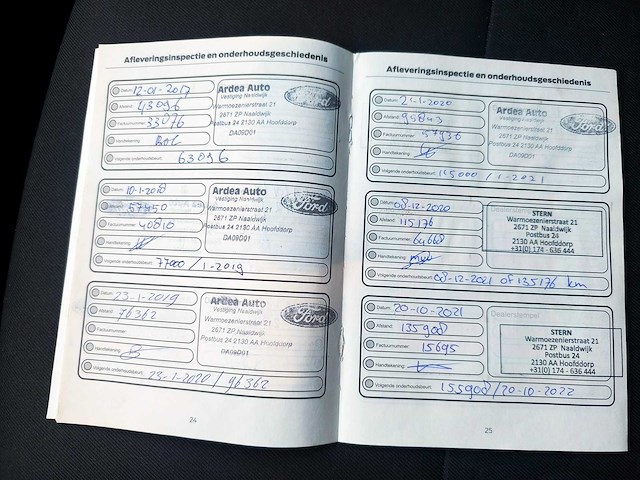 Afleveringsinspectie en onderhoudsgeschiedenis
Datum: 12-01-2017
Afstand: 43096
Factuurnummer: 33076
Handtekening:
Volgende onderhoudsbeurt: 63096
Ardea Auto
Vestiging Naaldwijk
Warmoezenierstraat 21
2671 ZP Naaldwijk
Postbus 24 2130 AA Hoofddorp
DA09D01
Ford
Datum: 10-1-2018
Afstand: 57450
Factuurnummer: 40810
Handtekening:
Volgende onderhoudsbeurt: 77000 / 1-2019
Ardea Auto
Vestiging Naaldwijk
Warmoezenierstraat 21
2671 ZP Naaldwijk
Postbus 24 2130 AA Hoofddorp
DA09D01
Ford
Datum: 23-1-2019
Afstand: 76362
Factuurnummer:
Handtekening:
Volgende onderhoudsbeurt: 23-1-2020 / 96362
Ardea Auto
Vestiging Naaldwijk
Warmoezenierstraat 21
2671 ZP Naaldwijk
Postbus 24 2130 AA Hoofddorp
DA09D01
Ford
24
Afleveringsinspectie en onderhoudsgeschiedenis
Datum: 21-1-2020
Afstand: 95843
Factuurnummer: 57936
Handtekening:
Volgende onderhoudsbeurt: 115000 / 1-2021
Ardea Auto
Vestiging Naaldwijk
Warmoezenierstraat 21
2671 ZP Naaldwijk
Postbus 24 2130 AA Hoofddorp
DA09D01
Ford
Datum: 08-12-2020
Afstand: 115176
Factuurnummer: 64668
Handtekening:
Volgende onderhoudsbeurt: 08-12-2021 of 135176 km
STERN
Warmoezenierstraat 21
2671 ZP Naaldwijk
Postbus 24
2130 AA Hoofddorp
+31(0) 174 - 636 444
Datum: 20-10-2021
Afstand: 135908
Factuurnummer: 15695
Handtekening:
Volgende onderhoudsbeurt: 155908 / 20-10-2022
Dealerstempel
STERN
Warmoezenierstraat 21
2671 ZP Naaldwijk
Postbus 24
2130 AA Hoofddorp
+31(0) 174 - 636 444
25